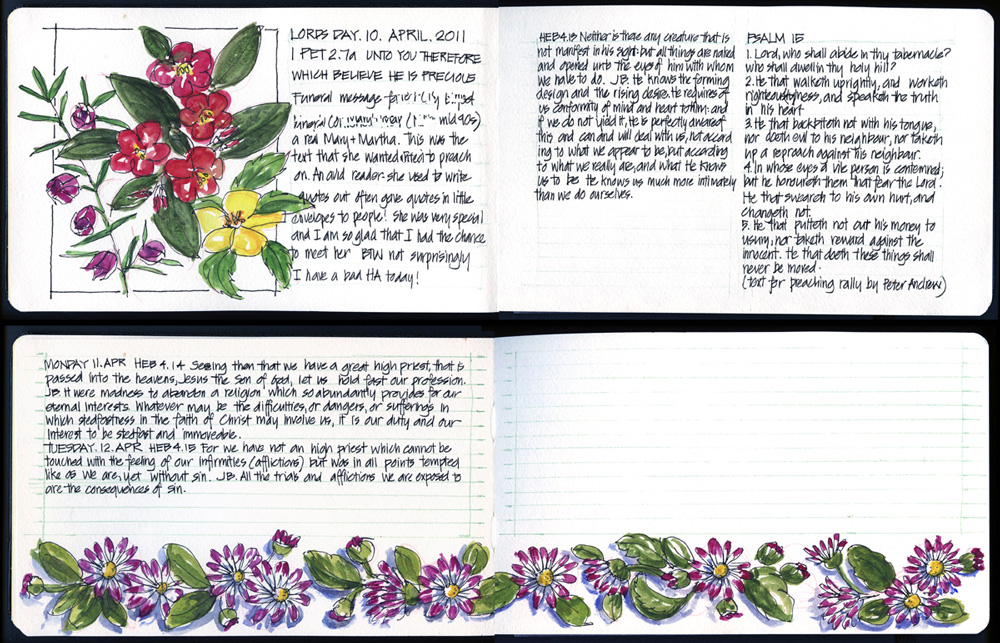 LORDS DAY. 10. APRIL. 2011
1 PET 2.7a UNTO YOU THEREFORE
WHICH BELIEVE HE IS PRECIOUS
Funeral message for
funeral (mid 40s)
a real Mary + Martha. This was the
text that she wanted to preach
on. An avid reader: she used to write
quotes out often gave quotes in little
envelopes to people! She was very special
and I am so glad that I had the chance
to meet her BTW not surprisingly
I have a bad HA today!
HEB 4.13 Neither is there any creature that is
not manifest in his sight: but all things are naked
and opened unto the eyes of him with whom
we have to do. JB. He knows the forming
design and the rising desire. He requires of
us conformity of mind and heart to him: and
if we do not yield it, He is perfectly aware of
this and can and will deal with us, not accord
ing to what we appear to be, but according
to what we really are, and what He knows
us to be. He knows us much more intimately
than we do ourselves.
PSALM 15
1. Lord, who shall abide in thy tabernacle?
who shall dwell in thy holy hill?
2. He that walketh uprightly, and worketh
righteousness, and speaketh the truth
in his heart
3. He that backbiteth not with his tongue,
nor doeth evil to his neighbour, nor taketh
up a reproach against his neighbour.
4. In whose eyes a vile person is contemned;
but he honoureth them that fear the Lord.
He that sweareth to his own hurt, and
changeth not.
5. He that putteth not out his money to
usury, nor taketh reward against the
innocent. He that doeth these things shall
never be moved.
(text for preaching rally by Peter Andrew)
MONDAY 11. APR HEB 4.14 Seeing then that we have a great high priest, that is
passed into the heavens, Jesus the Son of God, let us hold fast our profession.
JB. It were madness to abandon a religion which so abundantly provides for our
eternal interests. Whatever may be the difficulties, or dangers, or sufferings in
which stedfastness in the faith of Christ may involve us, it is our duty and our
interest to be stedfast and immoveable.
TUESDAY. 12. APR HEB 4.15 For we have not an high priest which cannot be
touched with the feeling of our infirmities (afflictions) but was in all points tempted
like as we are, yet without sin. JB. All the trials and afflictions we are exposed to
are the consequences of sin.